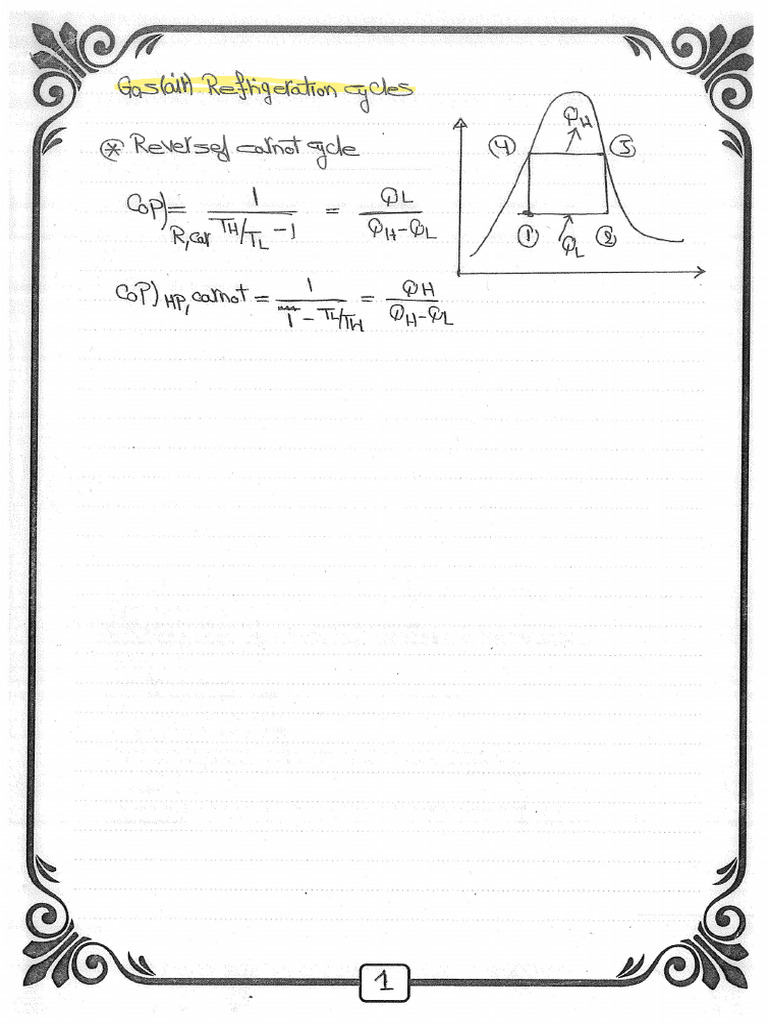 Gas(air) Refrigeration cycles
* Reversed carnot cycle
COP)R,car = 1 / (TH/TL - 1) = QL / (QH-QL)
COP)HP, carnot = 1 / (1 - TL/TH) = QH / (QH-QL)
QH
4 3
1 QL 2
1